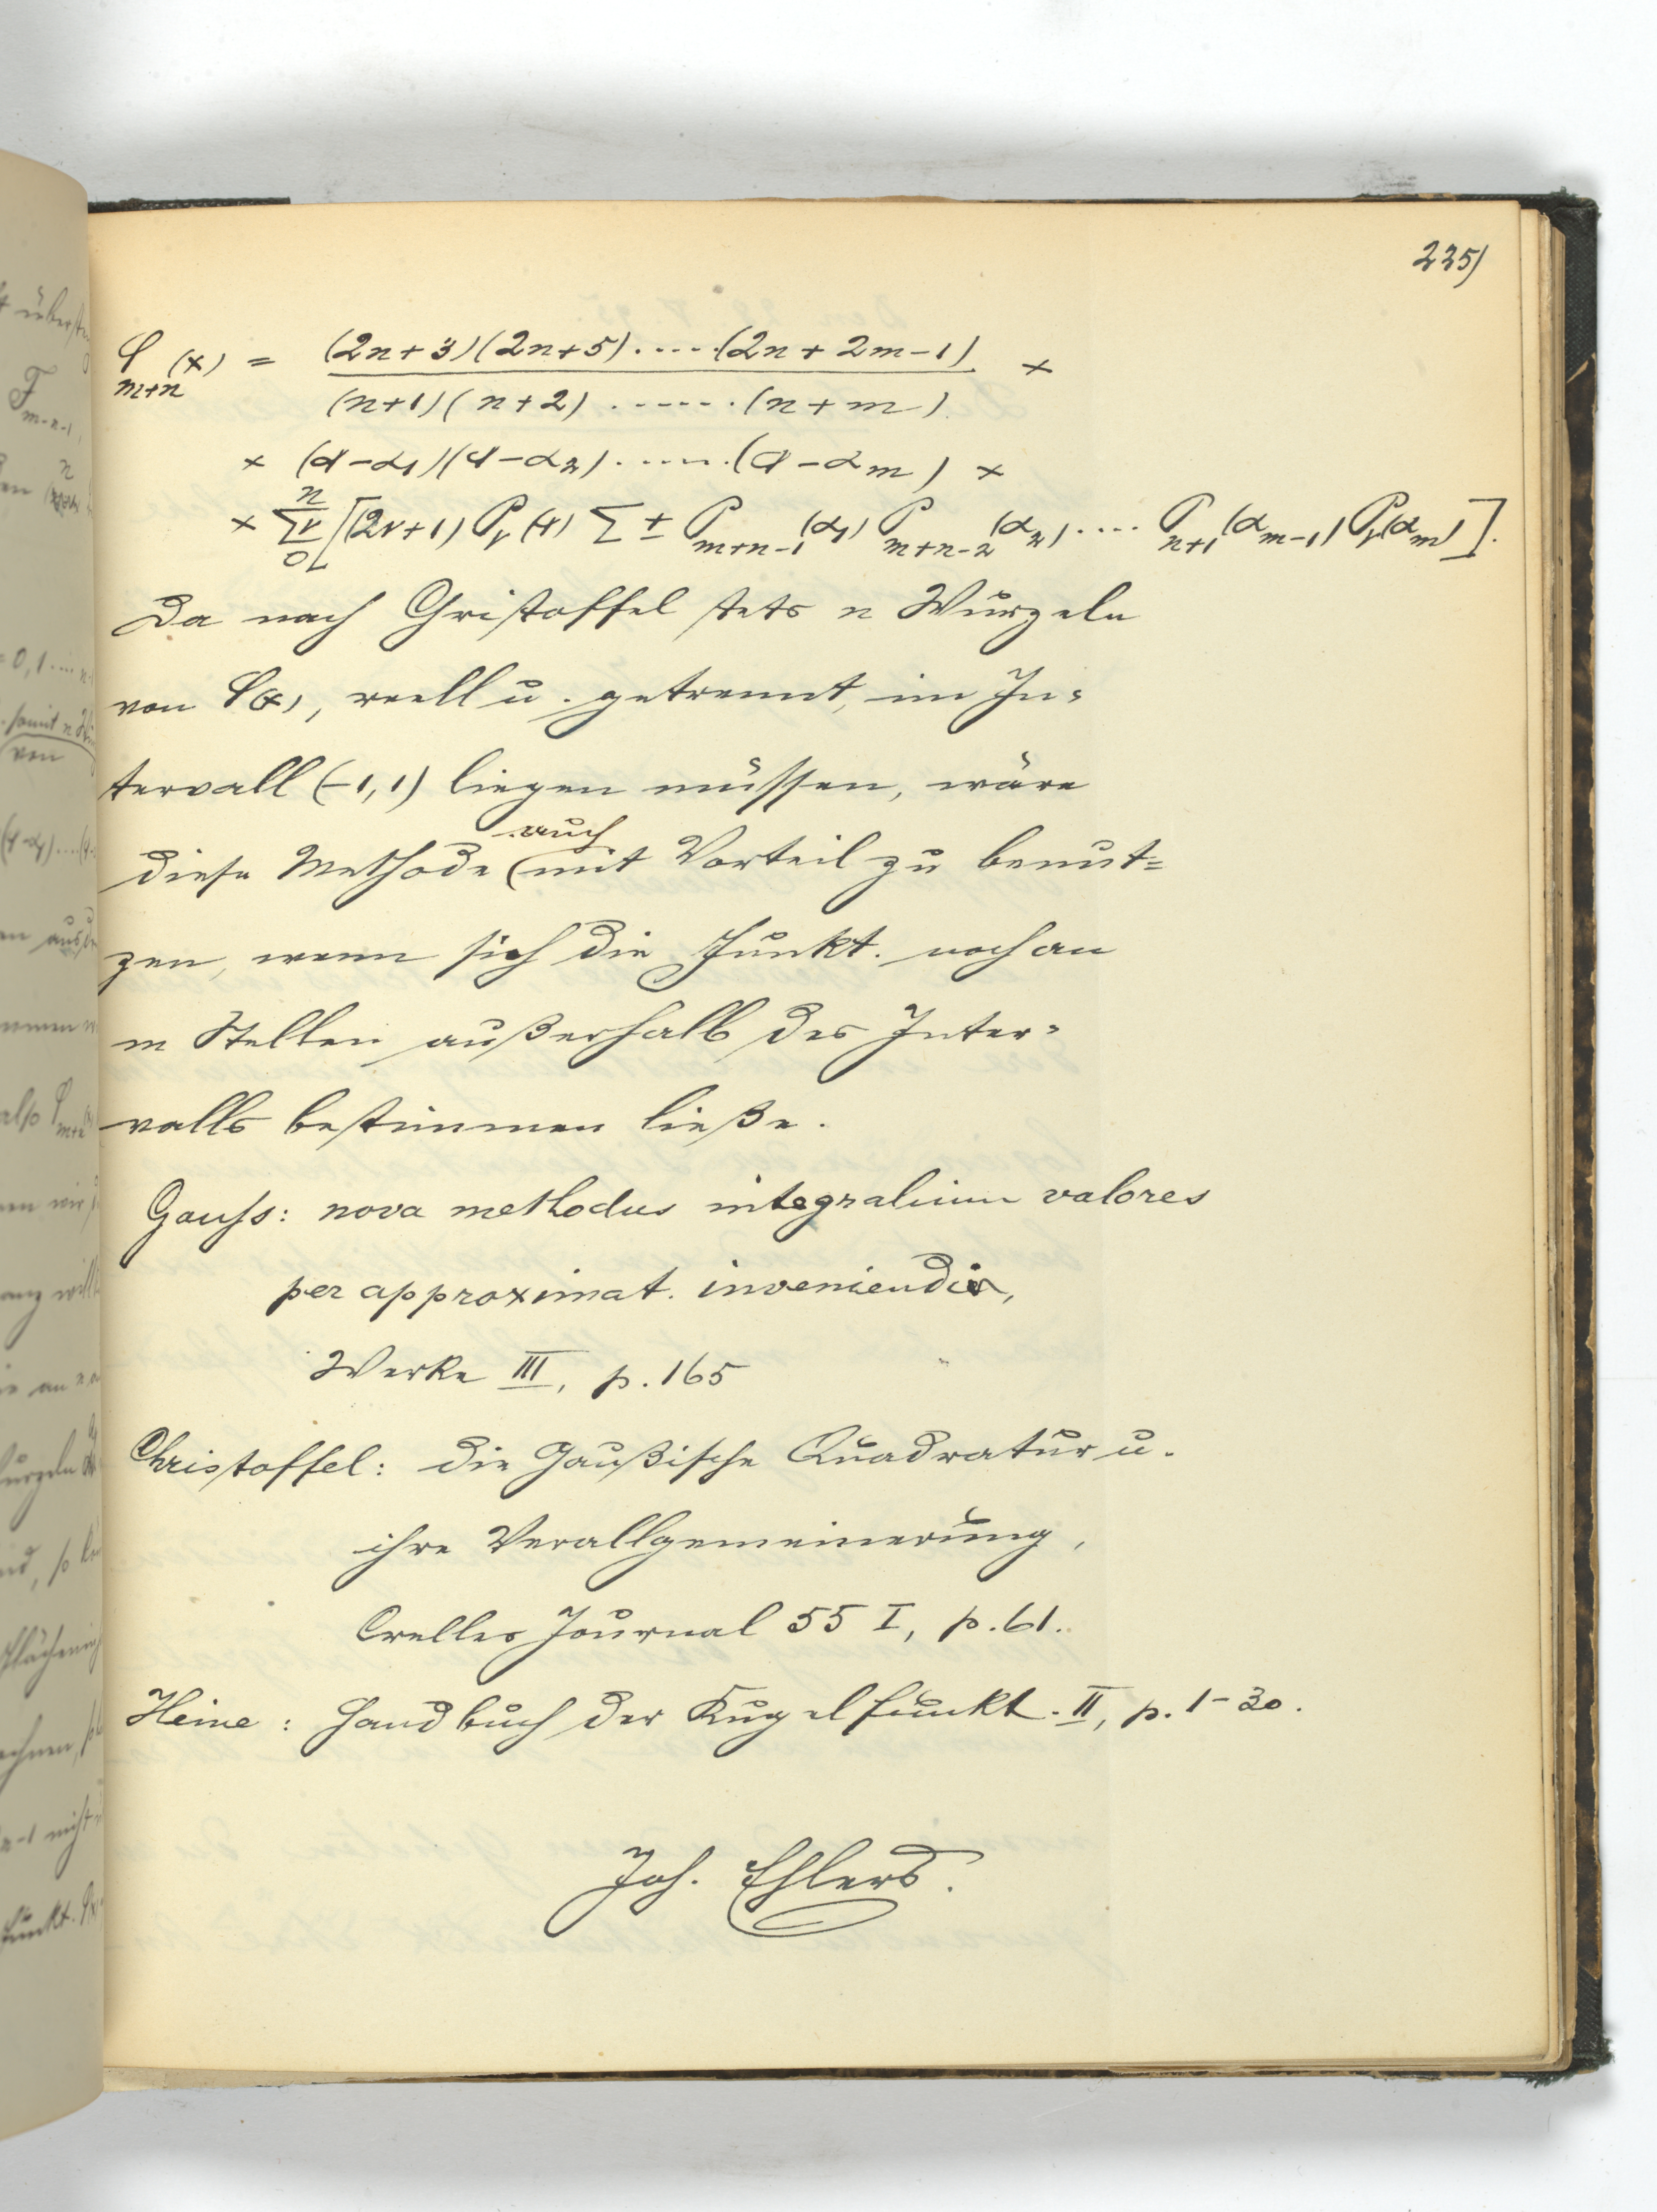 225)
φ_{m+n}(x) = \frac{(2n+3)(2n+5)·····(2n+2m-1)}{(n+1)(n+2)······(n+m)} ×
× (α-α_1)(α-α_2)·····(α-α_m) ×
× \sum_0^n ν [(2ν+1) P_ν(x) Σ ± P_{m+n-1}(α_1) P_{m+n-2}(α_2)···· P_{n+1}(α_{m-1}) P_ν(α_m)].
Da nach Christoffel stets n Wurzeln
von φ(x), reell u. getrennt, im In=
tervall (-1,1) liegen müssen, wäre
auch
diese Methode mit Vorteil zu benut=
zen, wenn sich die Funkt. noch an
m Stellen außerhalb des Inter=
valls bestimmen ließe.
Gauss: nova methodus integralium valores
per approximat. inveniendi,
Werke III, p. 165
Christoffel: die Gaußische Quadratur u.
ihre Verallgemeinerung,
Crelles Journal 55 I, p. 61.
Heine: Handbuch der Kugelfunkt. II, p. 1-30.
Joh. Ehlers.